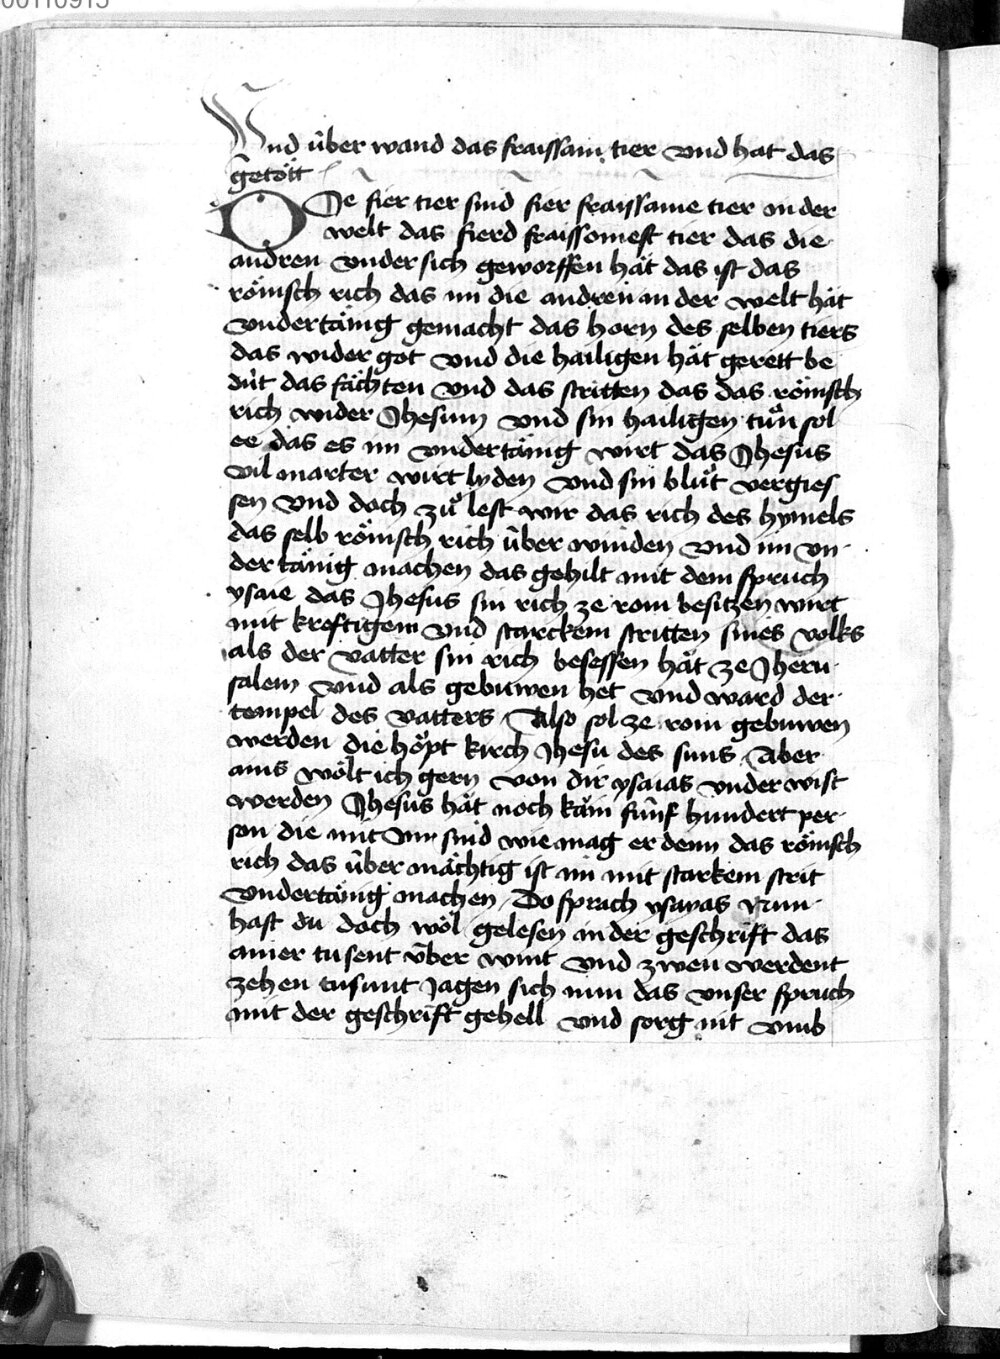 00110913
Vnd über wand das fraissam tier vnd hat das
getött
DJe fier tier sind fier fraissame tier in der
welt das fierd fraissomest tier das die
andren vnder sich geworffen hät das ist das
römisch rich das im die andren in der welt hät
vndertänig gemacht das horn des selben tiers
das wider got vnd die hailigen hät gerett be
düt das fächten vnd das stritten das das römisch
rich wider Jhesum vnd sin hailigen tůn sol
ee das es im vndertänig wirt das Jhesus
vil marter wirt lyden vnd sin blůt vergies
sen vnd doch zů lest wir das rich des hymels
das selb römisch rich über winden vnd im vn
der tänig machen das gehilt mit dem spruch
ysaie das Jhesus sin rich ze rom besitzen wirt
mit kreftigem vnd starckem stritten sines volks
als der vatter sin rich besessen hät ze Jheru
salem vnd als gebuwen het vnd ward der
tempel des vatters Also sol ze rom gebuwen
werden die höpt kirch Jhesu des suns Aber
ains wölt ich gern von dir ysaias vnder wist
werden Jhesus hät noch käm fünf hundert per
son die mit im sind wie mag er denn das römisch
rich das über mächtig ist im mit starkem strit
vndertänig machen Do sprach ysayas Nun
hast du doch wöl gelesen in der geschrift das
ainer tusent über wint vnd zwen werdent
zehen tusunt Jagen sich nun das vnser spruch
mit der geschrift gehell vnd sorg nit vmb